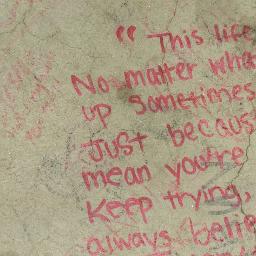 “ This life
No matter wha
up sometimes
Just becaus
mean you're
Keep trying,
always belie